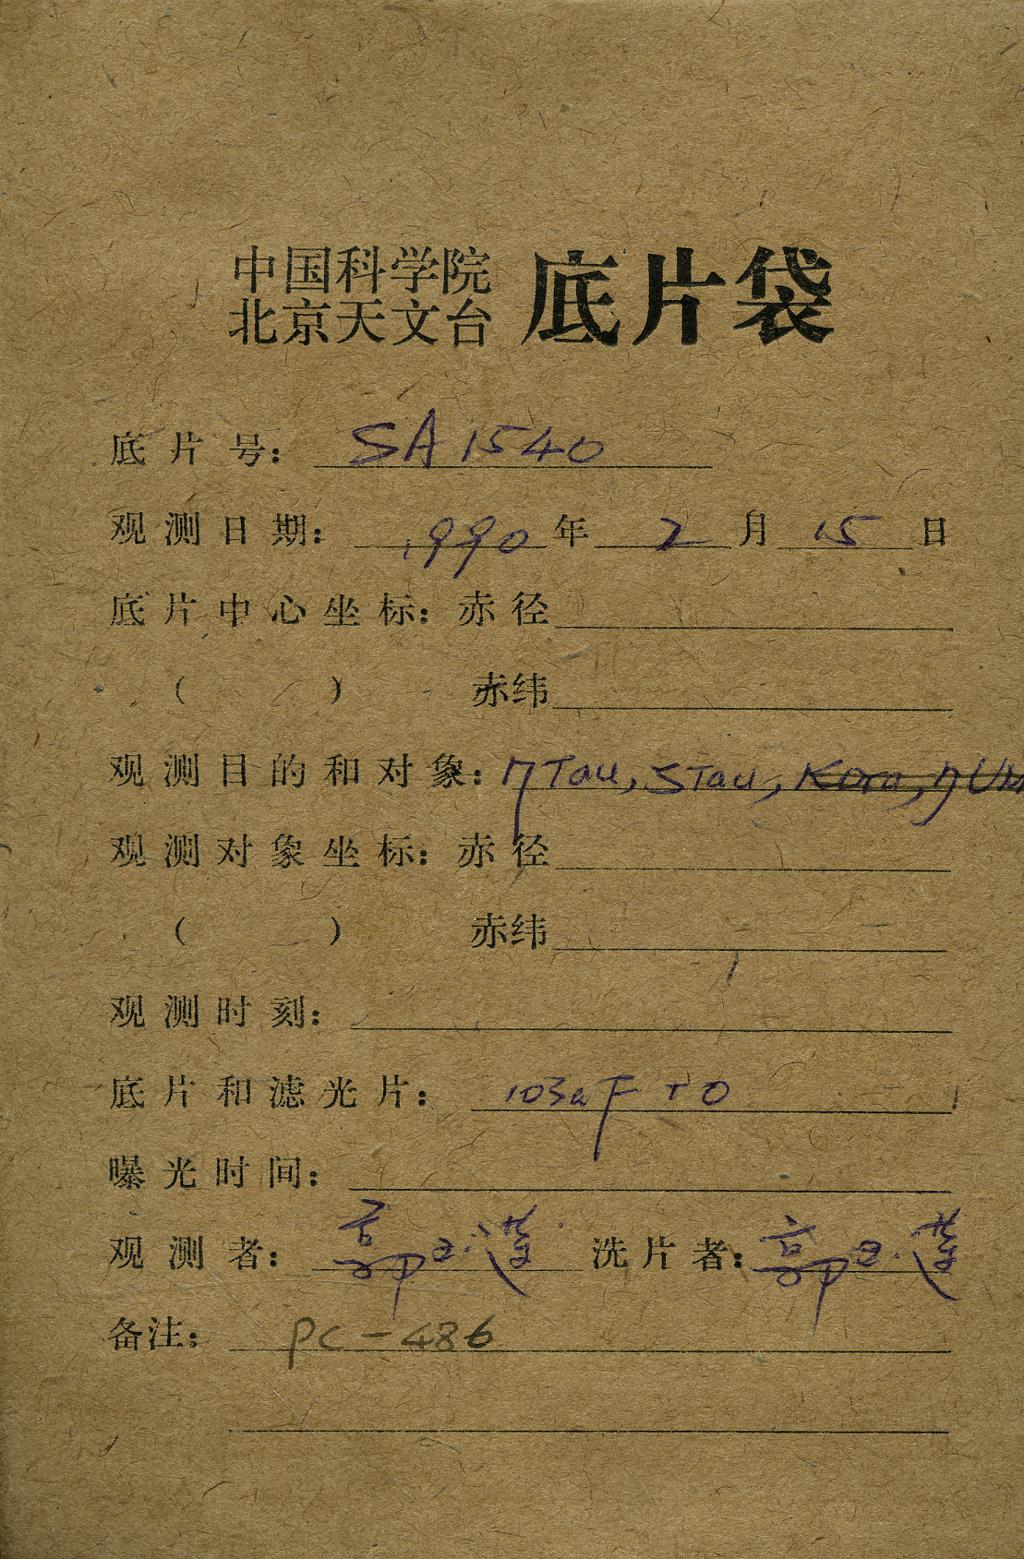 中国科学院
北京天文台 底片袋
底片号： SA1540
观测日期： 1990 年 2 月 15 日
底片中心坐标：赤径
（ ） 赤纬
观测目的和对象：η Tau, 5 Tau,
观测对象坐标：赤径
（ ） 赤纬
观测时刻：
底片和滤光片： 103aF
曝光时间：
观测者：郭玉莲 洗片者：郭玉莲
备注： PC-486